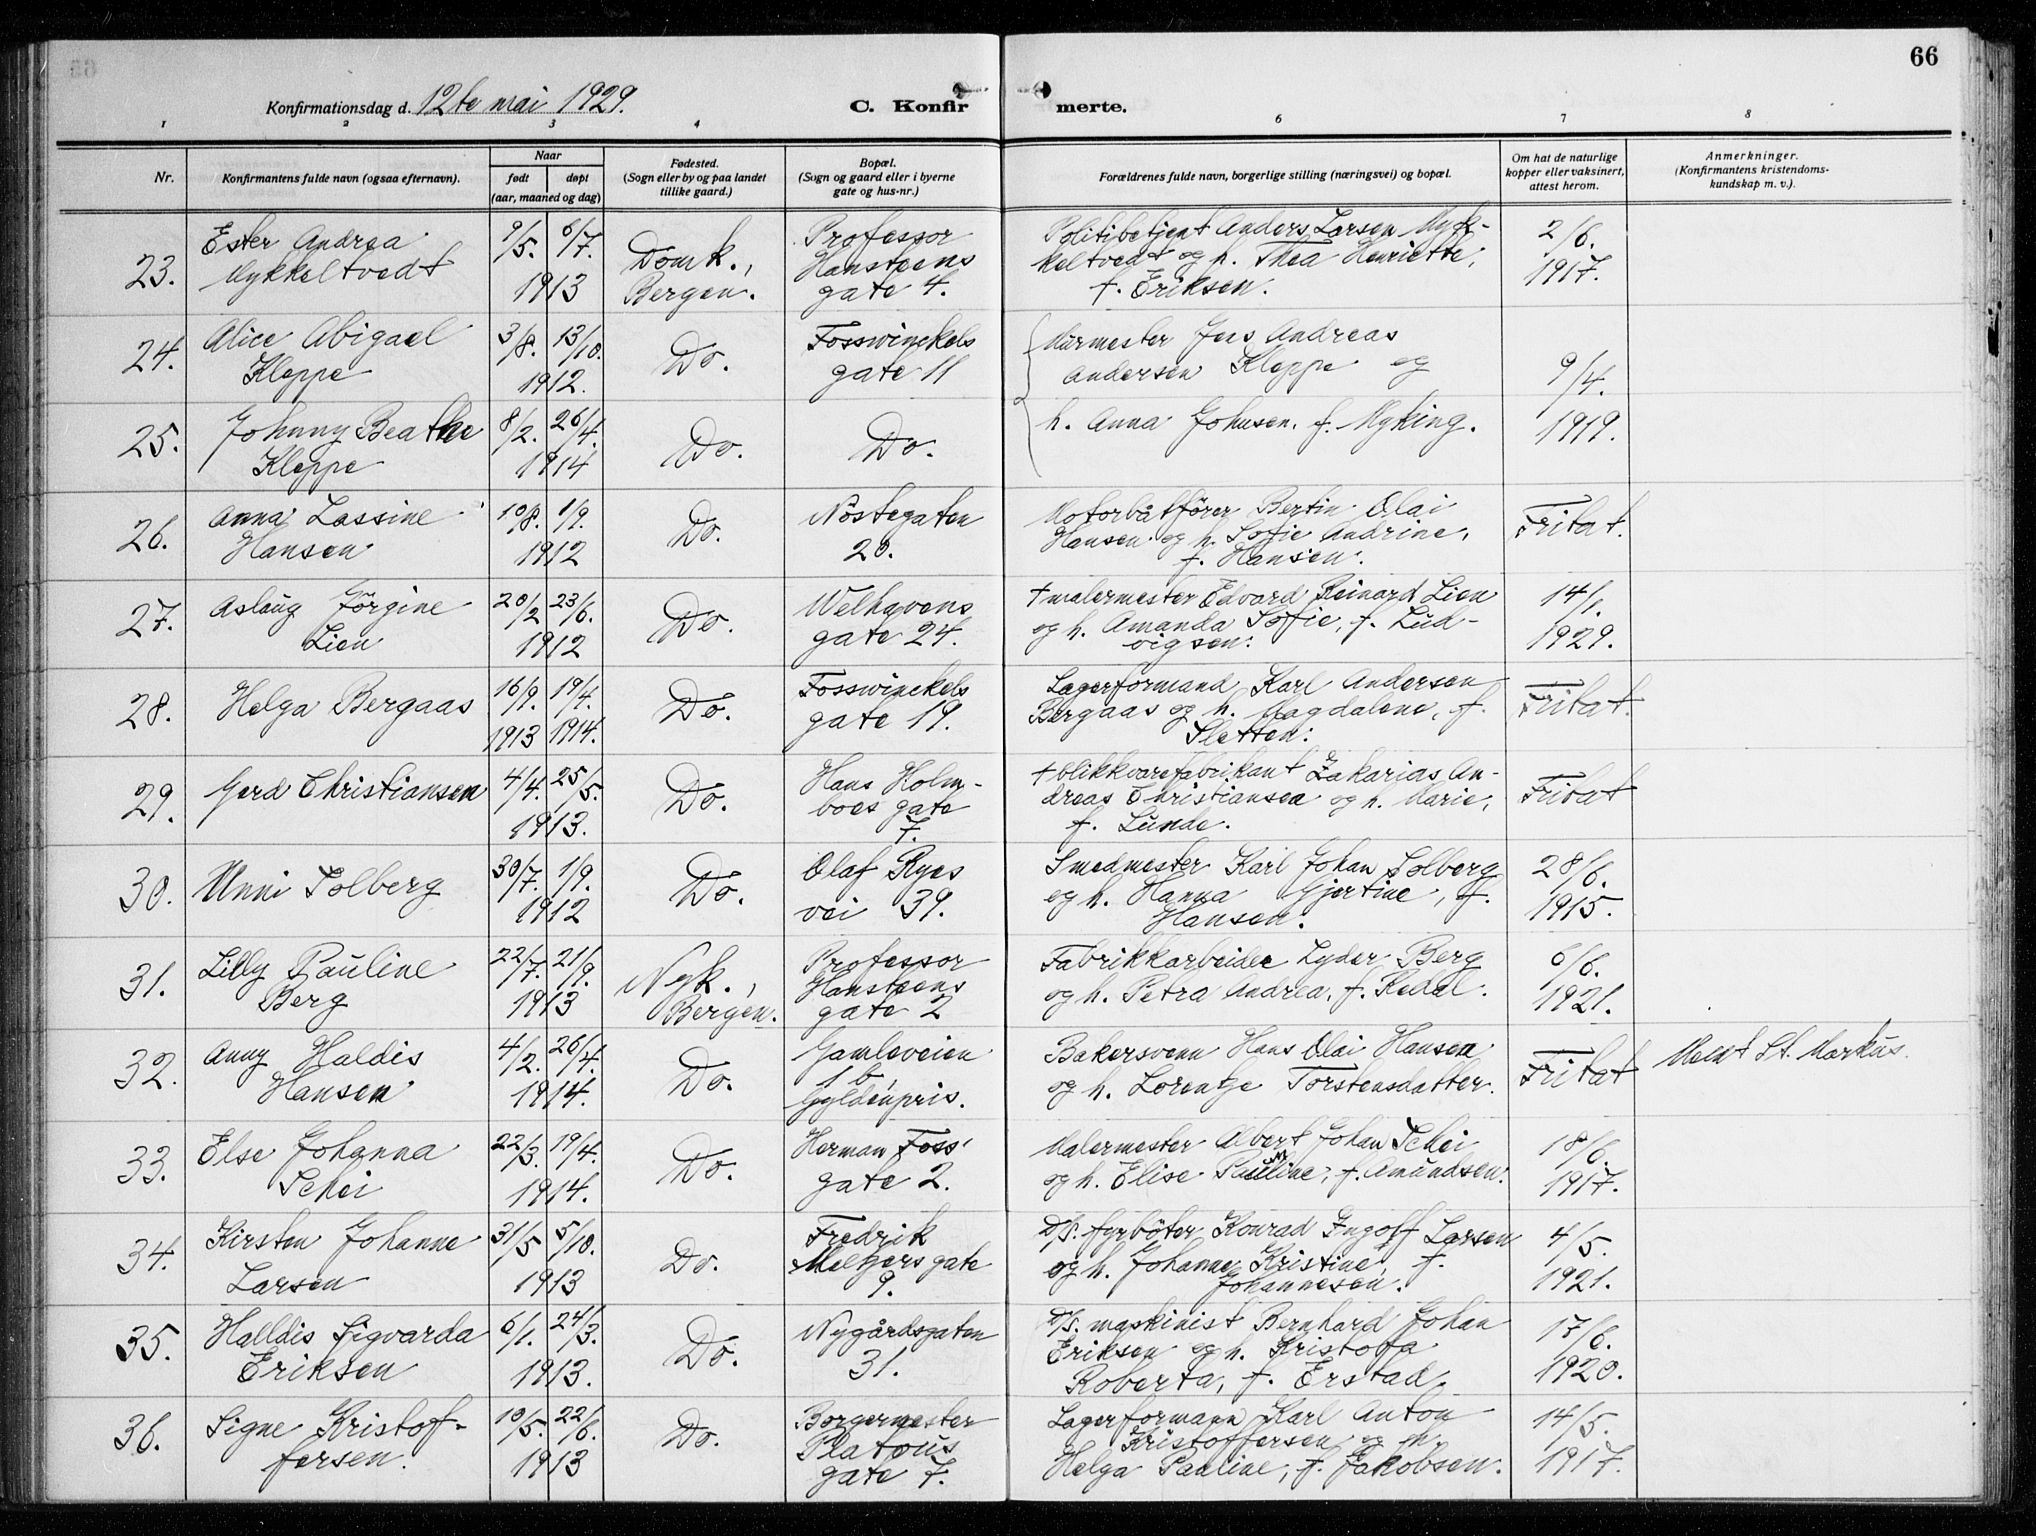 66
Konfirmationsdag d. 12te mai 1929.
C. Konfir merte.
1 2 3 4 6 7 8
Nr.
Konfirmantens fulde navn (ogsaa efternavn).
Naar
født døpt
(aar, maaned og dag)
Fødested.
(Sogn eller by og paa landet
tillike gaard.)
Bopæl.
(Sogn og gaard eller i byerne
gate og hus-nr.)
Forældrenes fulde navn, borgerlige stilling (næringsvei) og bopæl.
Om hat de naturlige
kopper eller vaksinert,
attest herom.
Anmerkninger.
(Konfirmantens kristendoms-
kundskap m. v.).
23. Ester Andrea
Mykkeltvedt
9/5. 6/7.
1913
Domk.,
Bergen.
Professor
Hansteens
gate 4.
Politibetjent Anders Larsen Myk-
keltvedt og h. Thea Henriette,
f. Eriksen.
2/6.
1917.
24. Alice Abigael
Kleppe
3/8. 13/10.
1912.
Do.
Fosswinckels
gate 11
Murmester Jens Andreas
Andersen Kleppe og
9/4.
25. Johnny Beathe
Kleppe
8/2. 26/4.
1914
Do.
Do.
h. Anna Johnsen. f. Myking.
1919.
26. Anna Lassine
Hansen
10/8. 1/9.
1912
Do.
Nöstegaten
20.
Motorbåtförer Bertin Olai
Hansen og h. Sofie Andrine,
f. Hansen.
Fritat.
27. Aslaug Jörgine
Lien
20/2 23/6.
1912
Do.
Welhavens
gate 24.
† malermester Edvard Reinard Lien
og h. Amanda Sofie, f. Lud-
vigsen.
14/1.
1929.
28. Helga Bergaas
16/9. 19/4.
1913 1914.
Do.
Fosswinckels
gate 19.
Lagerformand Karl Andersen
Bergaas og h. Magdalene, f.
Sletten.
Fritat.
29. Gerd Christiansen
4/4. 25/5.
1913.
Do.
Hans Holm-
boes gate
7.
† blikkvarefabrikant Zakarias An-
dreas Christiansen og h. Marie,
f. Lunde.
Fritat
30. Unni Solberg
30/7. 1/9.
1912
Do.
Olaf Ryes
vei 39.
Smedmester Karl Johan Solberg
og h. Hanna Gjertine, f.
Hansen.
28/6.
1915.
31. Lilly Pauline
Berg
22/7. 21/9.
1913
Nyk.,
Bergen.
Professor
Hansteens
gate 2
Fabrikkarbeider Lyder Berg
og h. Petra Andrea, f. Kedel.
6/6.
1921.
32. Anny Haldis
Hansen
4/2. 26/4.
1914.
Do.
Gamleveien
1 b,
Gyldenpris.
Bakersvenn Hans Olai Hansen
og h. Lorentze Torstensdatter.
Fritat
Ment St. Markus.
33. Else Johanna
Schei
22/3. 19/4.
1914.
Do.
Herman Foss'
gate 2.
Malermester Albert Johan Schei
og h. Elise Pauline, f. Amundsen.
18/6.
1917.
34. Kirsten Johanne
Larsen
31/5 5/10.
1913
Do.
Fredrik
Meltzers gate
9.
D/S. fyrböter Konrad Ingolf Larsen
og h. Johanne Kristine, f.
Johannesen.
4/5.
1921.
35. Halldis Sigvarda
Eriksen
6/1. 24/3.
1913.
Do.
Nygårdsgaten
31.
D/S. maskinist Bernhard Johan
Eriksen og h. Kristofa
Roberta, f. Erstad.
17/6.
1920.
36. Signe Kristof-
fersen.
10/5. 22/6.
1913
Do.
Borgermester
Platous
gate 7.
Lagerformann Karl Anton
Kristoffersen og h.
Helga Pauline, f. Jakobsen.
14/5.
1917.